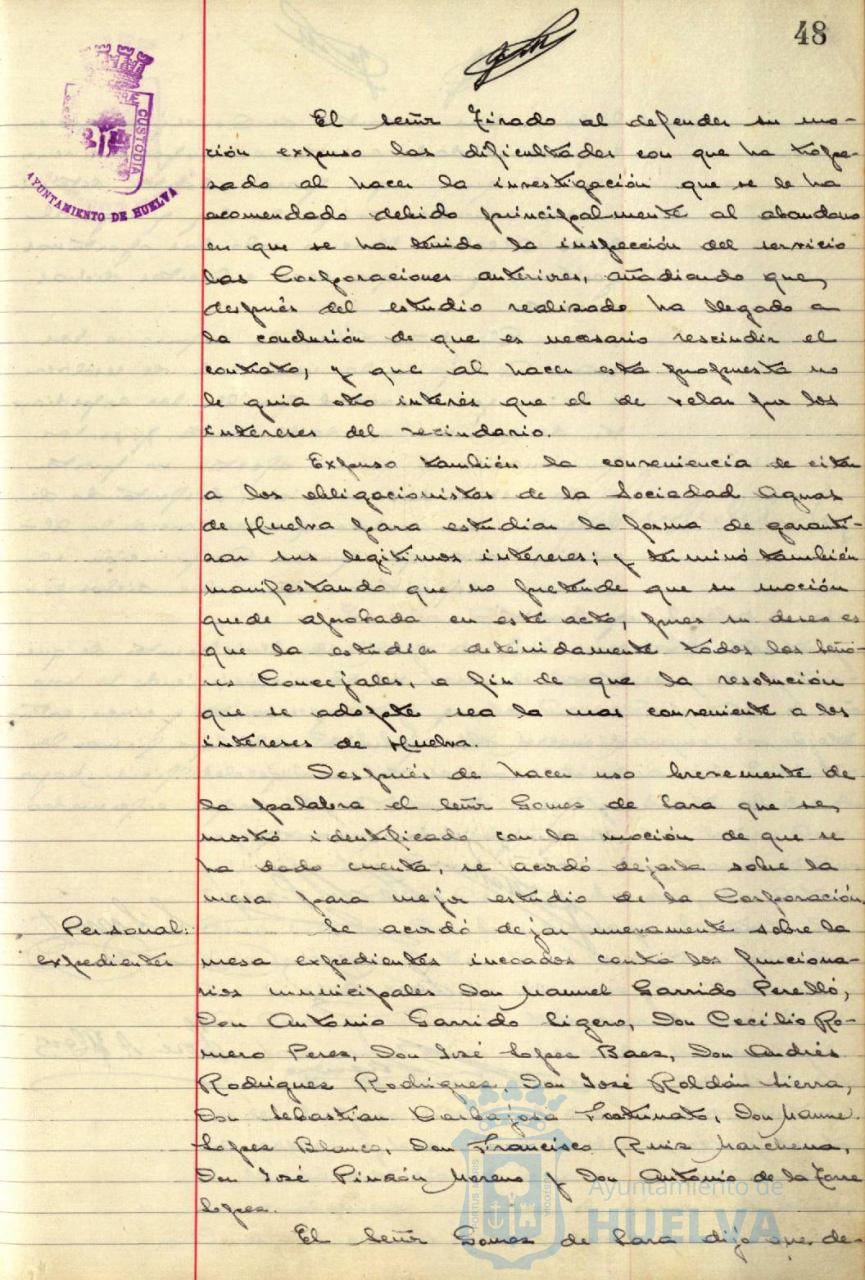 48
CUSTODIA
AYUNTAMIENTO DE HUELVA
El señor Tirado al defender su mo-
ción expuso las dificultades con que ha trope-
sado al hacer la investigación que se le ha
acomendado debido principalmente al abandono
en que se han tenido la inspección del servicio
las Corporaciones anteriores, añadiendo que,
después del estudio realizado ha llegado a
la conclusión de que es necesario rescindir el
contrato, y que al hacer esta propuesta no
le guia otro interés que el de velar por los
intereses del vecindario.
Expuso también la conveniencia de citar
a los obligacionistas de la Sociedad Aguas
de Huelva para estudiar la forma de garanti-
zar sus legitimos intereses; y terminó también
manifestando que no pretende que su moción
quede aprobada en este acto, pues su deseo es
que la estudien detenidamente todos los Seño-
res Concejales, a fin de que la resolución
que se adopte sea la mas conveniente a los
intereses de Huelva.
Después de hacer uso brevemente de
la palabra el señor Gomez de Lara que se,
mostró identificado con la moción de que se
ha dado cuenta, se acordó dejarla sobre la
mesa para mejor estudio de la Corporación.
Personal:
expedientes
Se acordó dejar nuevamente sobre la
mesa expedientes incoados contra los funciona-
rios municipales Don Manuel Garrido Perelló,
Don Antonio Garrido Ligero, Don Cecilio Ro-
mero Perez, Don José Lopez Baez, Don Andrés
Rodriguez Rodriguez, Don José Roldán Sierra,
Don Sebastian Carbajosa Fortunato, Don Manuel
Lopez Blanco, Don Francisco Ruiz Marchena,
Don José Pinzón Moreno y Don Antonio de la Torre
Lopez.
El Señor Gomez de Lara dijo que de-
Ayuntamiento de
HUELVA